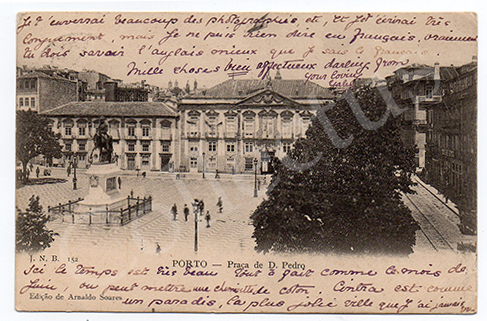 Je t'enverrai beaucoup des photographies, et, et Je t'écrirai très
longuement, mais Je ne puis rien dire en Français, vraiment
tu dois savoir l'anglais mieux que je sais le français
Mille choses bien affectueux darling, from
your loving
J. N. B. 152
PORTO — Praça de D. Pedro
Ici le Temps est très beau Tout à fait comme le mois de
Juin, on peut mettre une de coton. est comme
Edição de Arnaldo Soares
un paradis, la plus jolie ville que j'ai jamais